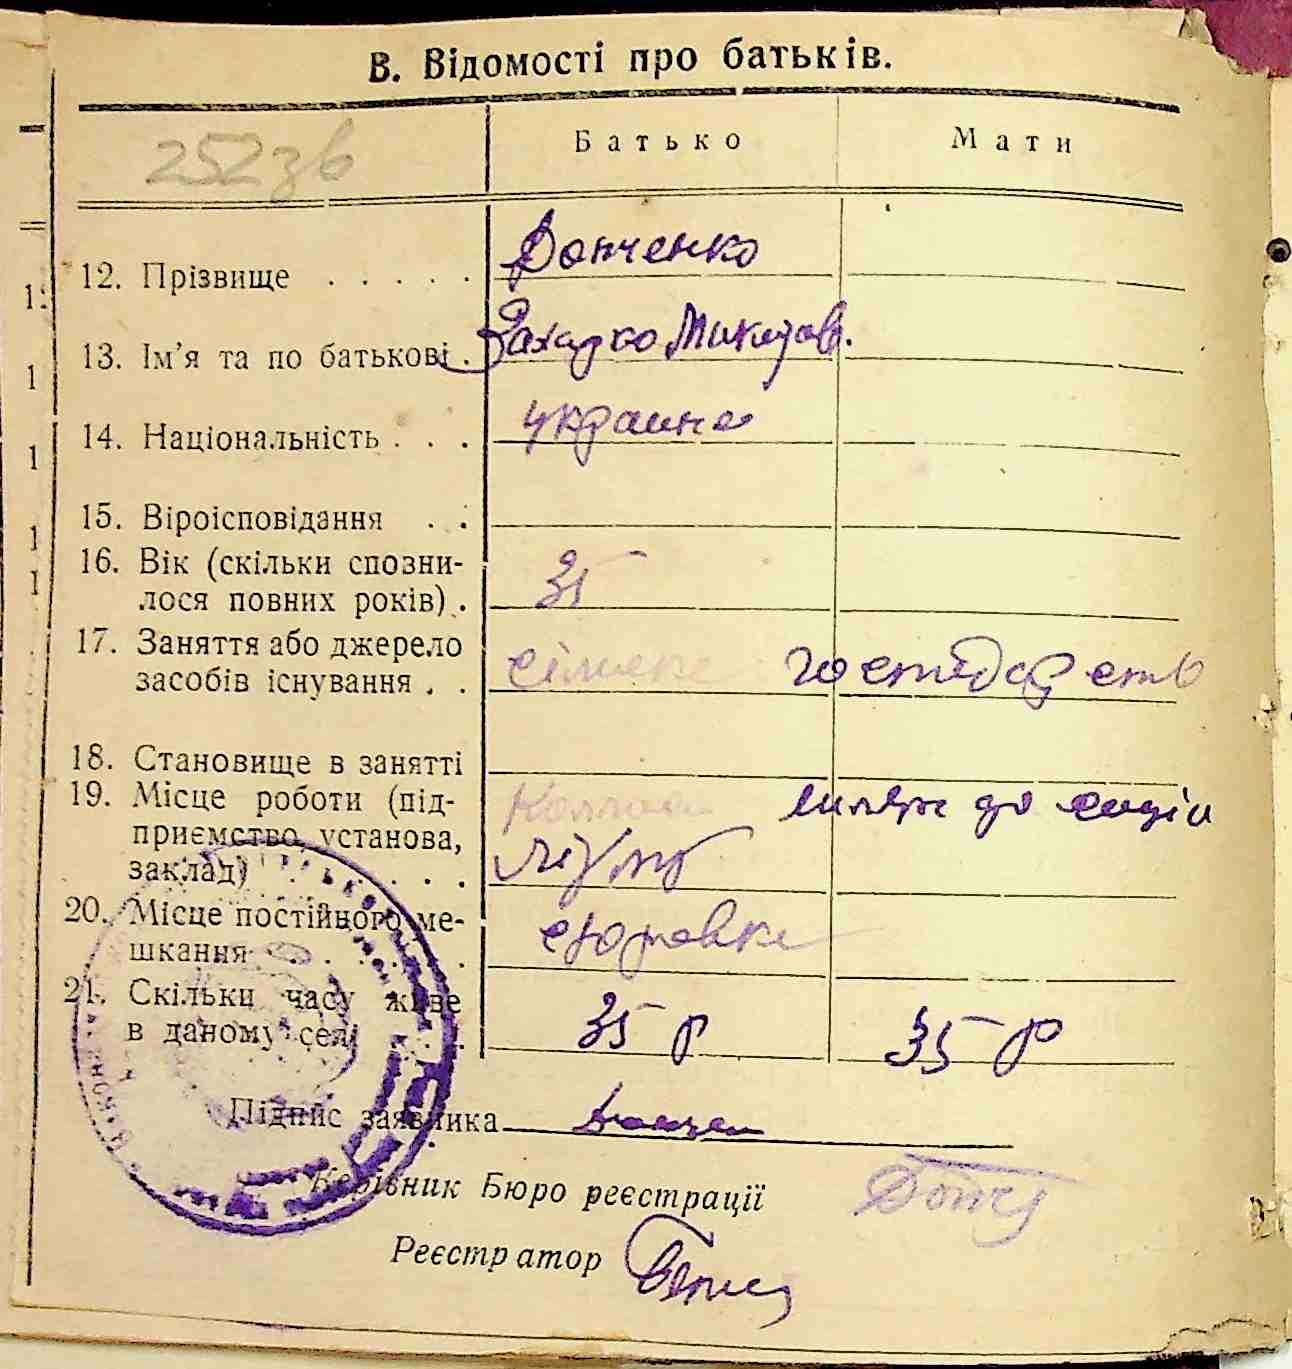 В. Відомості про батьків.
252зв
Батько Мати
12. Прізвище . . . . . Донченко
13. Ім’я та по батькові . Захарко Микитов.
14. Національність . . . украине
15. Віроісповідання . .
16. Вік (скільки спозни-
лося повних років) . 35
17. Заняття або джерело
засобів існування . . сільске господарство
18. Становище в занятті
19. Місце роботи (під-
приємство, установа,
заклад) . . . . . .
20. Місце постійного ме-
шкання . . . . .
21. Скільки часу живе
в даному селі . . . 35 р 35 р
Підпис заявника
Керівник Бюро реєстрації
Реєстратор